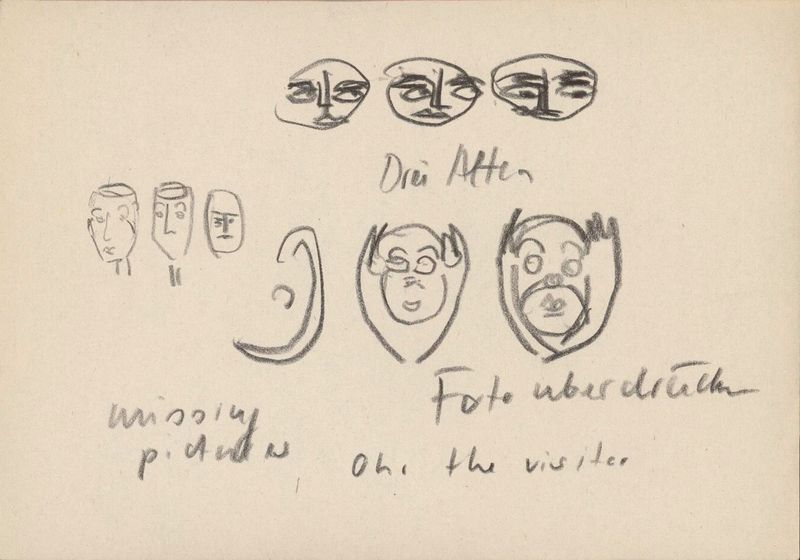 Drei Affen
Foto überdrücken
missing
pictures
Oh, the visitor